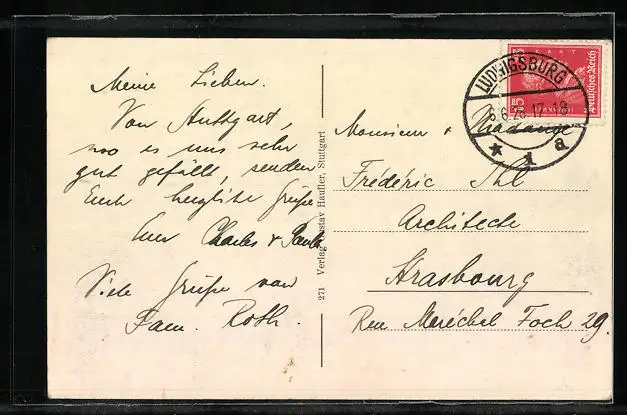 Meine Lieben.
Von Stuttgart,
wo es uns sehr
gut gefällt, senden
Euch herzliche Grüße
Euer Charles & Paula
Viele Grüße von
Fam. Roth.
271 Verlag Gustav Haufler, Stuttgart
LUDWIGSBURG
17-18
* 1 a
KANT
15 15
Deutsches Reich
Monsieur & Madame
Frédéric Ihl
Architecte
Strasbourg
Rue Maréchal Foch 29.